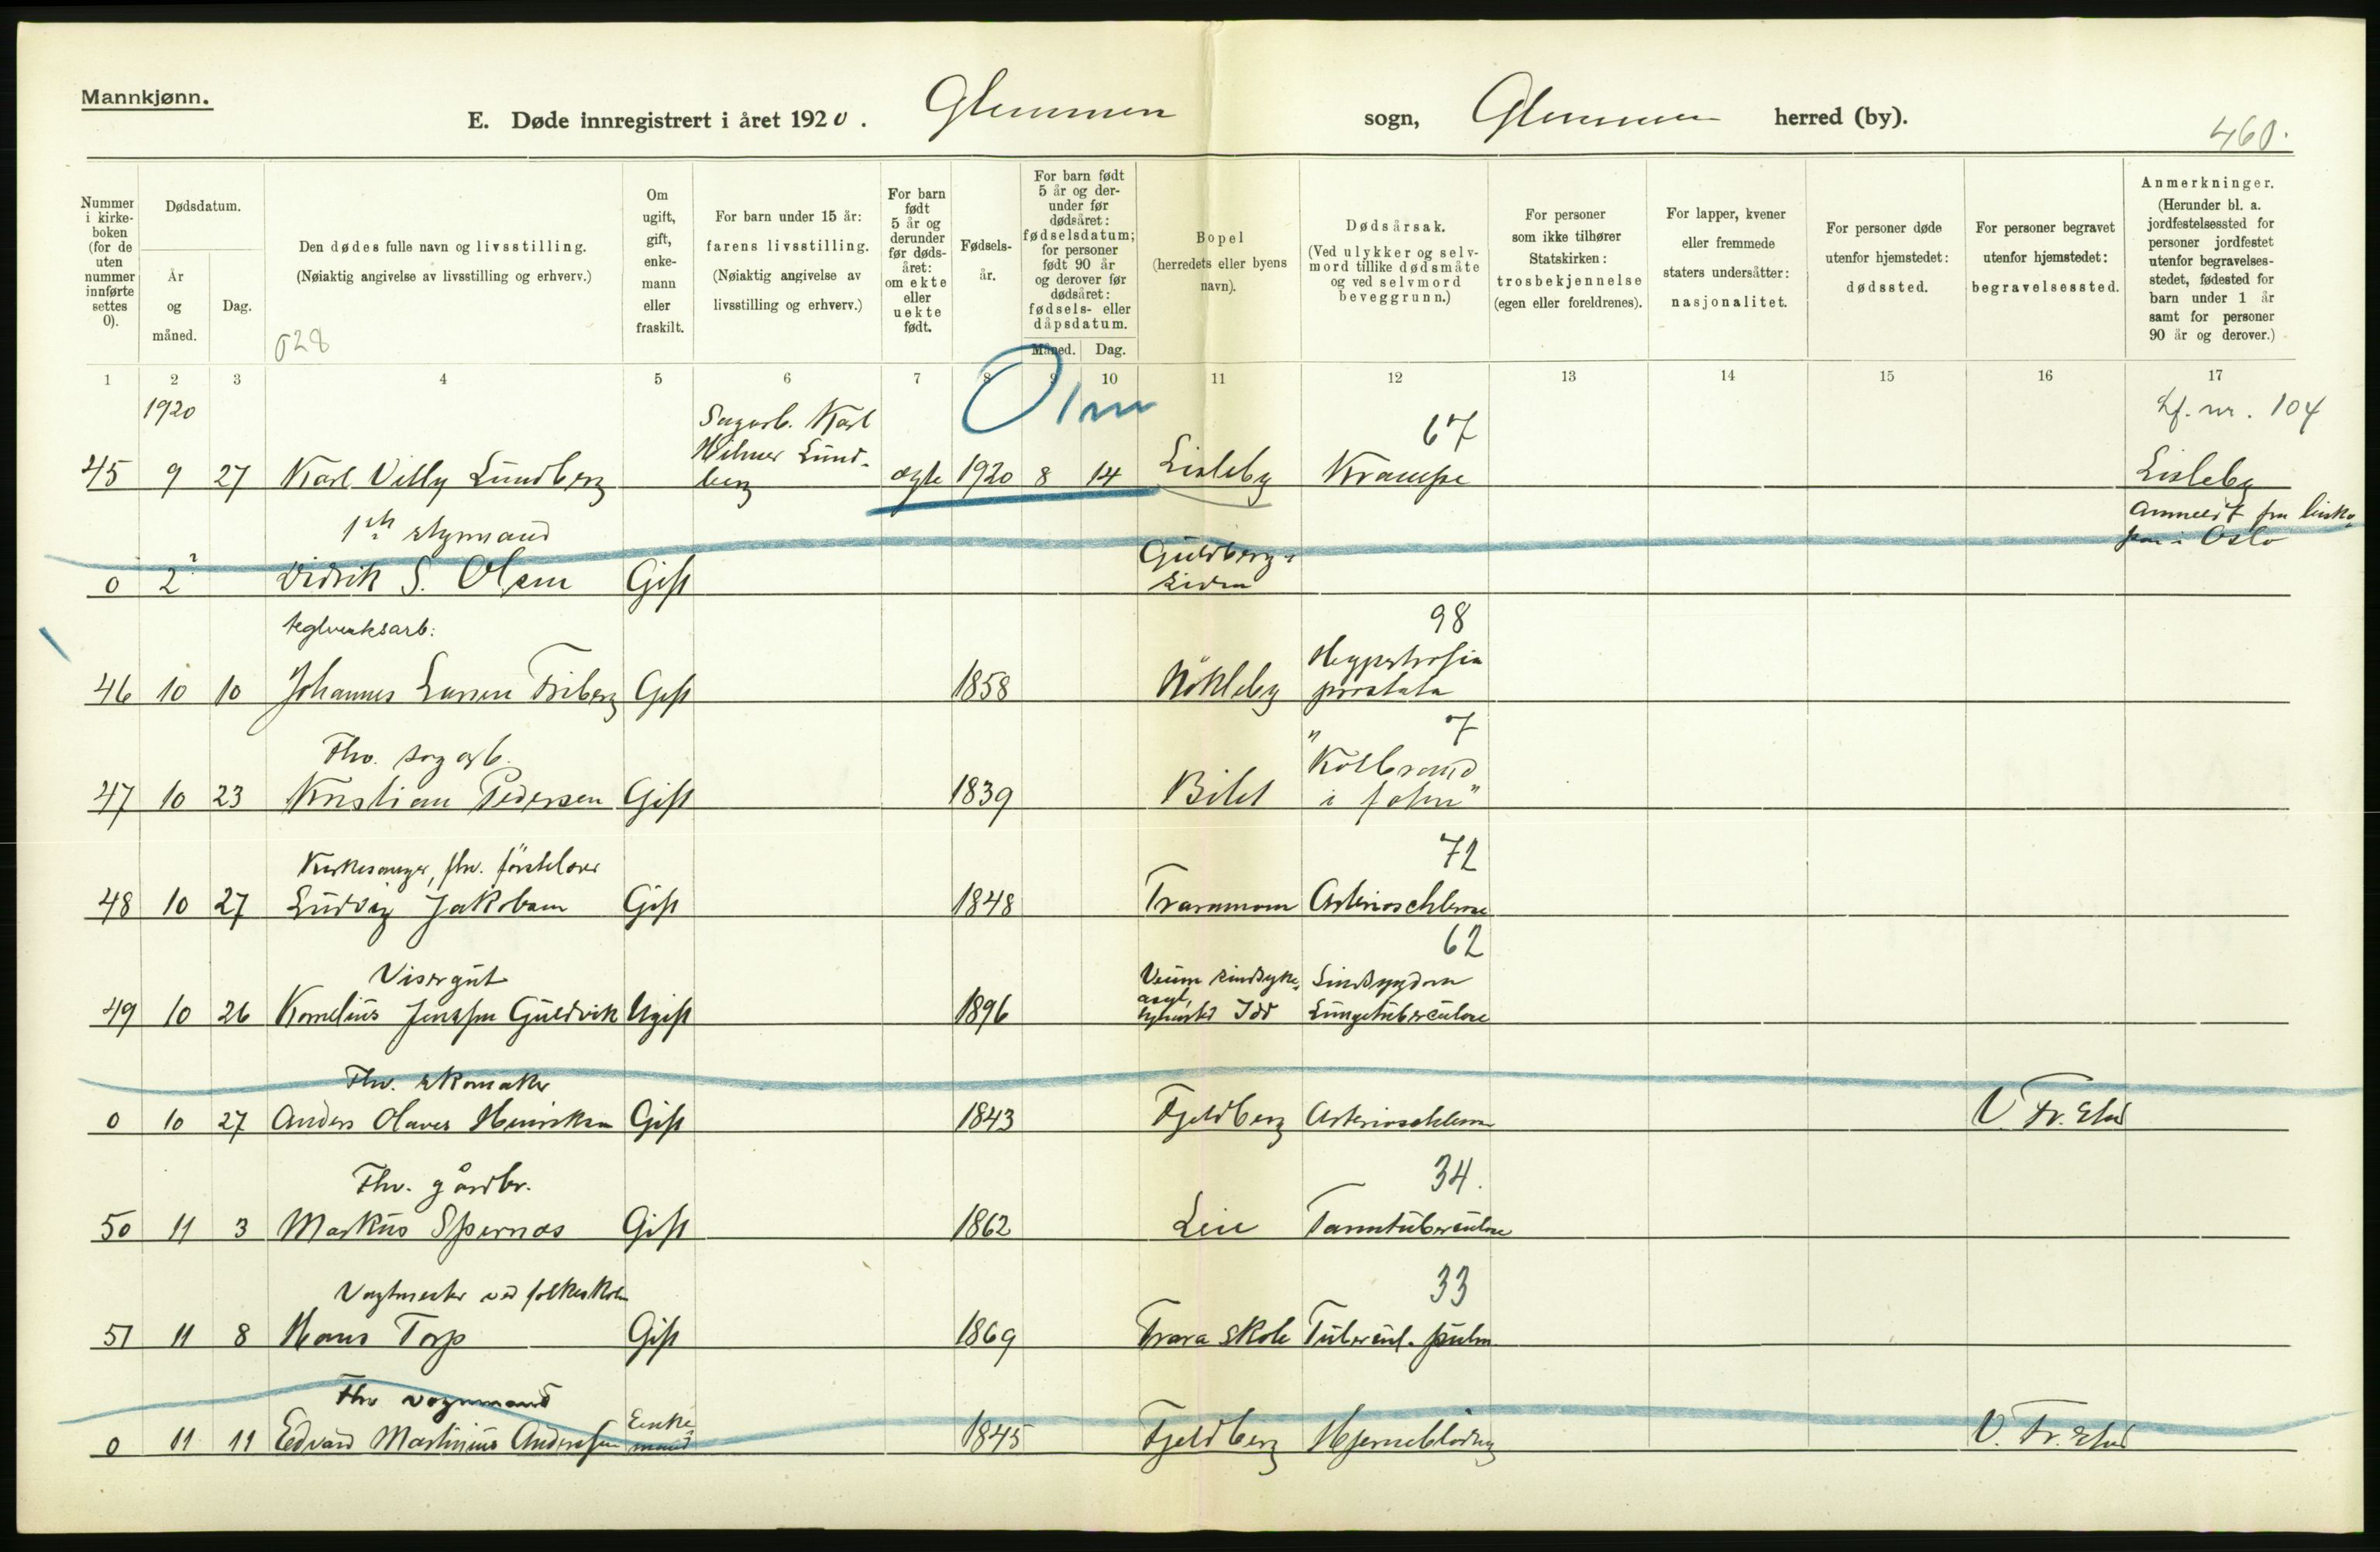 Mannkjønn.
E. Døde innregistrert i året 1920. Glemmen sogn, Glemmen herred (by).
460.
Nummer i kirke-boken (for de uten nummer innførte settes 0).
Dødsdatum.
År og måned.
Dag.
Den dødes fulle navn og livsstilling.
(Nøiaktig angivelse av livsstilling og erhverv.)
028
Om ugift, gift, enke-mann eller fraskilt.
For barn under 15 år:
farens livsstilling.
(Nøiaktig angivelse av livsstilling og erhverv.)
For barn født 5 år og derunder før døds-året: om ekte eller uekte født.
Fødsels-år.
For barn født 5 år og der-under før dødsåret: fødselsdatum; for personer født 90 år og derover før dødsåret: fødsels- eller dåpsdatum.
Måned. Dag.
Bopel
(herredets eller byens navn).
Dødsårsak.
(Ved ulykker og selv-mord tillike dødsmåte og ved selvmord beveggrunn.)
For personer som ikke tilhører Statskirken: trosbekjennelse (egen eller foreldrenes).
For lapper, kvener eller fremmede staters undersåtter: nasjonalitet.
For personer døde utenfor hjemstedet: dødssted.
For personer begravet utenfor hjemstedet: begravelsessted.
Anmerkninger.
(Herunder bl. a. jordfestelsessted for personer jordfestet utenfor begravelses-stedet, fødested for barn under 1 år samt for personer 90 år og derover.)
1 2 3 4 5 6 7 8 9 10 11 12 13 14 15 16 17
1920
Lf. nr. 104
Sagarb. Karl
67
Hilmer Lund-
45 9 27 Karl Villy Lundberg berg ægte 1920 8 14 Lisleby Krampe Lisleby
1ste styrmand
Anmeldt fra
i Oslo
Guldberg-
0 2? Didrik S. Olsen Gift siden
teglverksarb:
98
Hyppertrofia
46 10 10 Johannes Larsen Friberg Gift 1858 Nökleby prostata
Fhv. sagarb.
7
"Kolbrand
47 10 23 Kristian Pedersen Gift 1839 Bilet i foten"
Kirkesanger, fhv. förstelærer
72
48 10 27 Ludvig Jakobsen Gift 1848 Traramoen Arterioschlerose
62
Visergut
Veum sindsyke- Sindssygdom
asyl,
49 10 26 Kornelius Jensen Guldvik Ugift 1896 Idd Lungetuberculose
Fhv. skomaker
0 10 27 Anders Olaves Henriksen Gift 1843 Fjeldberg Arterioschlerose V. Fr.stad
Fhv. gårdbr.
34.
50 11 3 Markus Spernæs Gift 1862 Leie Tarmtuberculose
Vagtmester ved folkeskolen
33
51 11 8 Hans Torp Gift 1869 Trara skole Tubercul. pulm.
Fhv vognmand
Enke-
0 11 11 Edvard Martinius Andersen mand 1845 Fjeldberg Hjerneblødning V. Fr.stad